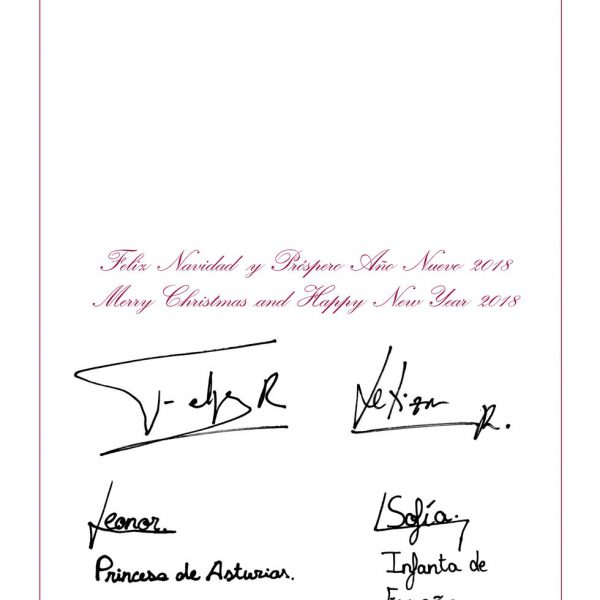 Feliz Navidad y Próspero Año Nuevo 2018
Merry Christmas and Happy New Year 2018
Felipe R Letizia R.
Leonor. Sofía.
Princesa de Asturias. Infanta de
España